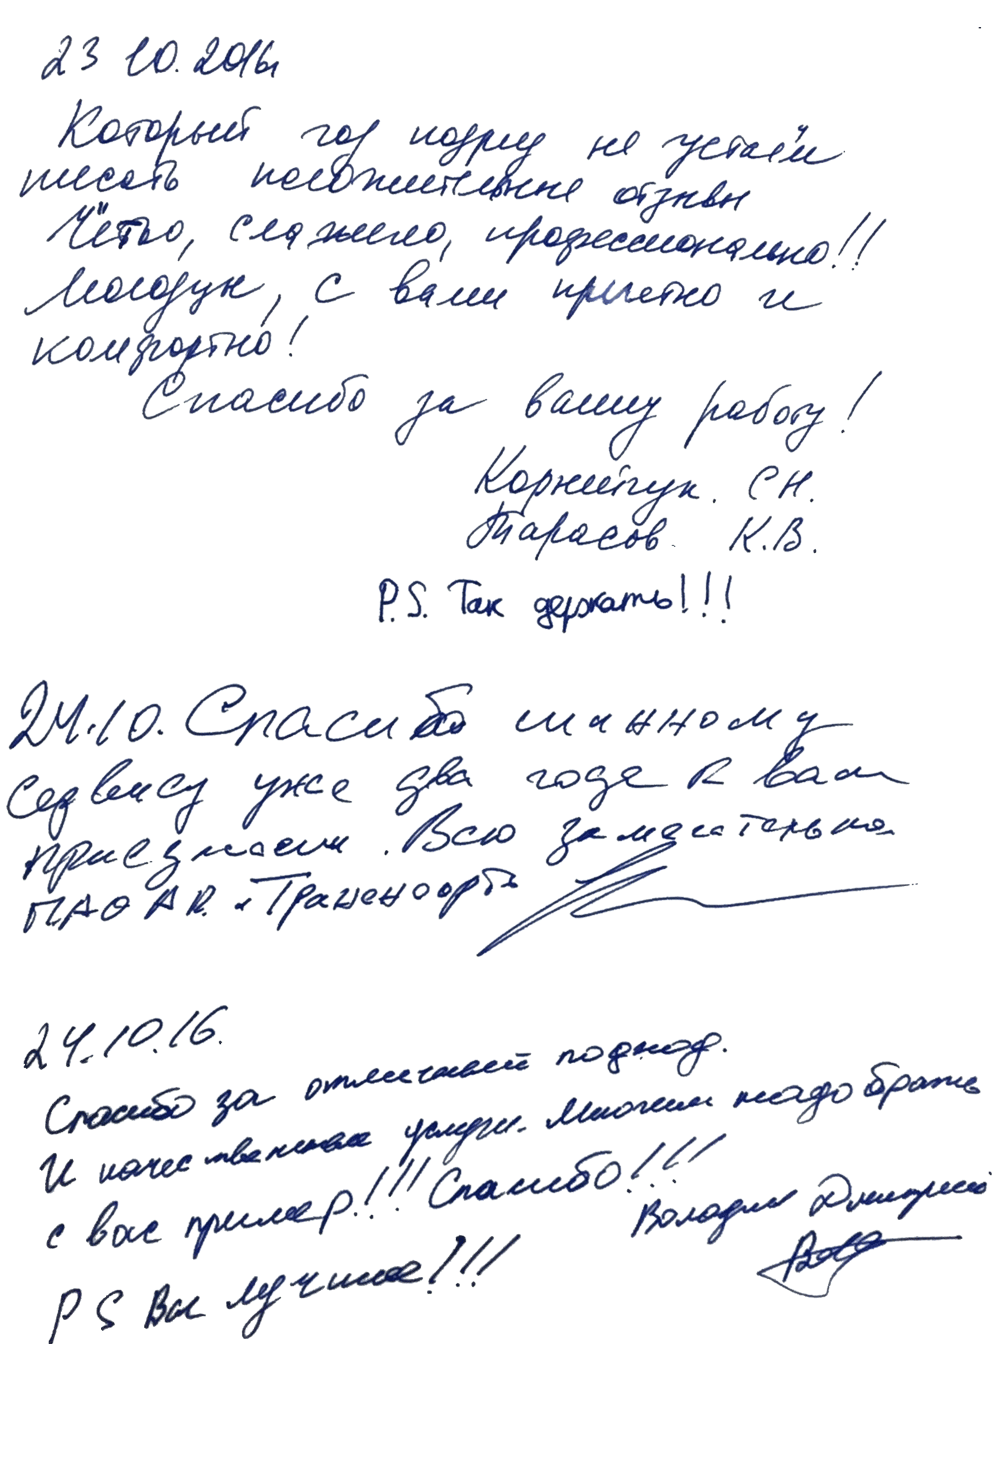 23 10.2016г
Который год подряд не устаём
писать положительные отзывы
Чётко, слажено, профессионально!!
Молодцы, с вами приятно и
комфортно!
Спасибо за вашу работу!
Корнийчук. С Н.
Тарасов К.В.
P.S. Так держать!!!
24.10. Спасибо шинному
сервису уже два года к Вам
приезжаем. Всё замечательно.
ПАО АК. "Транснефть"
24.10.16.
Спасибо за отличный подход.
И качественные услуги. Многим надо брать
с вас пример!!! Спасибо!!!
Дмитрий
P S Вы лучшие!!!